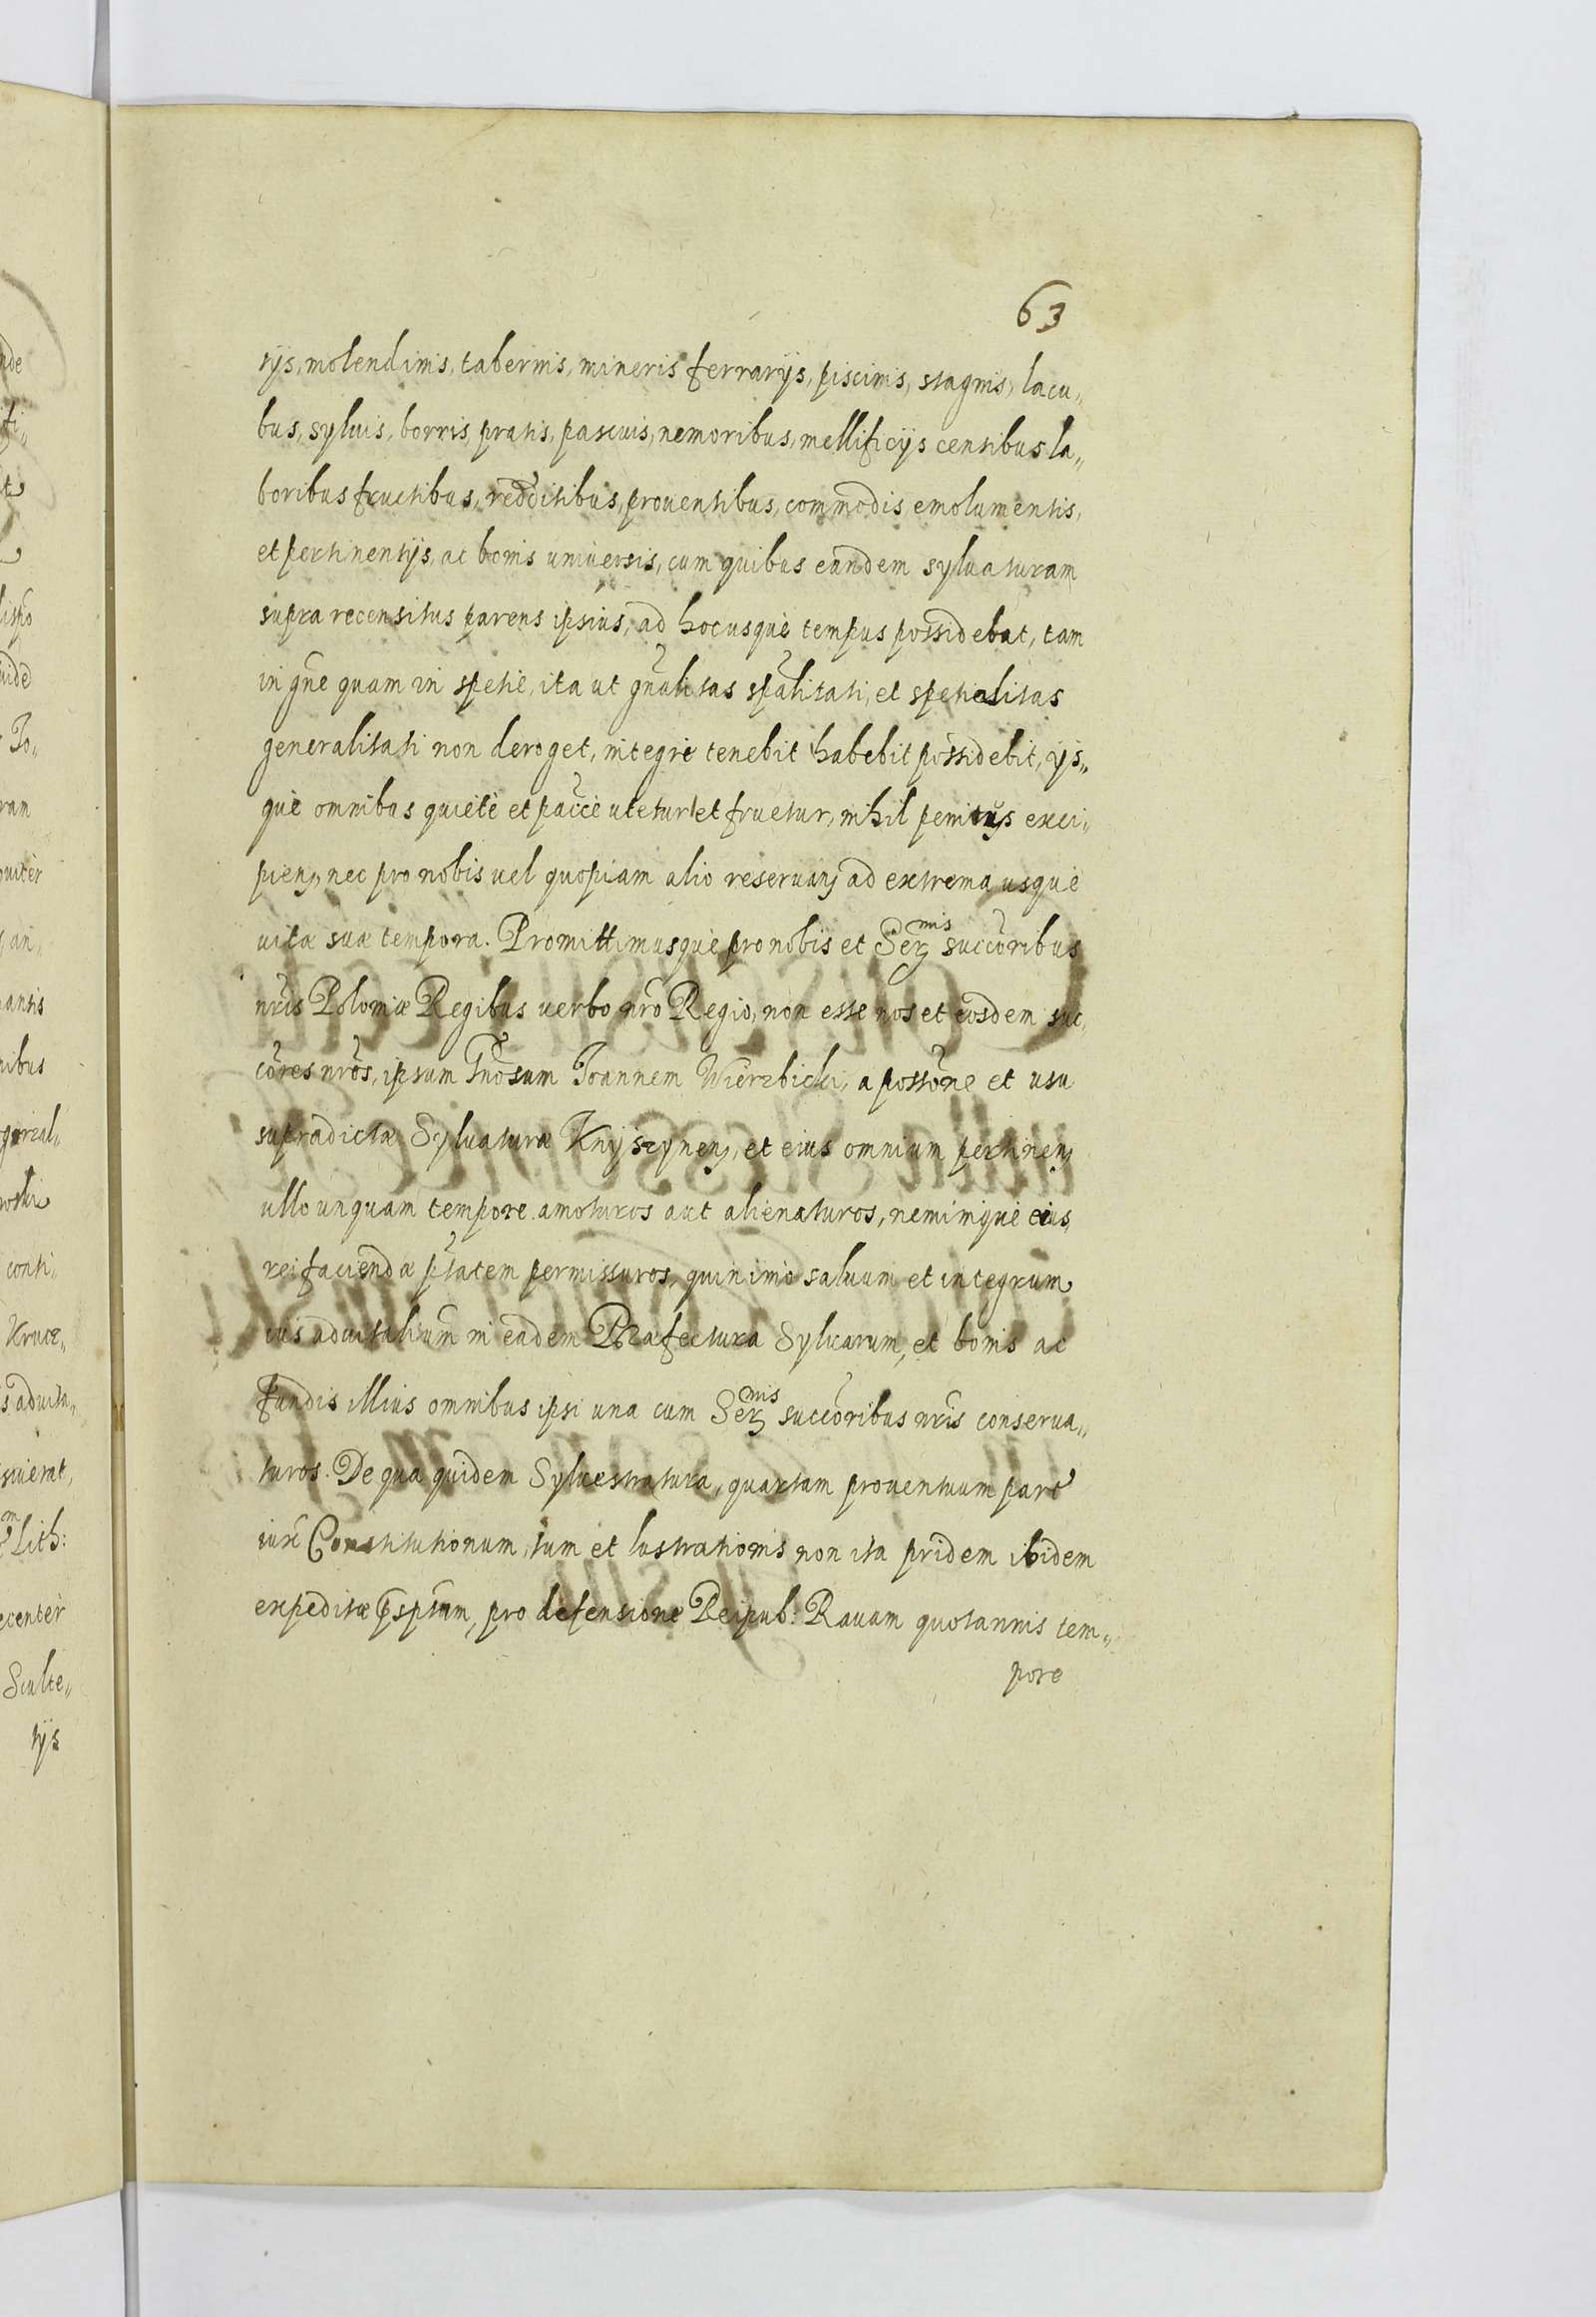 63
rijs, molendinis, tabernis, mineris ferrarijs, piscinis, stagnis, lacu„
bus, syluis, borris, pratis, pascuis, nemoribus, mellificijs censibus la„
boribus fructibus, redditibus, prouentibus, commodis emolumentis,
et pertinentijs, ac bonis uniuersis, cum quibus eandem syluaturam
supra recensitus parens ipsius, ad hocusque tempus possidebat, tam
in gñe quam in spetie, ita ut gñalitas spãlitati, et spetialitas
generalitati non deroget, integre tenebit habebit possidebit, ijs„
que omnibus quiete et pacce utetur et fruetur, nihil penitus exci„
piens, nec pro nobis uel quopiam alio reseruans ad extrema usque
uitæ suæ tempora. Promittimusque pro nobis et Ser^mis succoribus
nris Poloniæ Regibus uerbo nro Regio, non esse nos et eosdem suc„
cores nros, ipsum Gnosum Joannem Wierzbicki, a possone et usu
supradictæ Syluaturæ Knijszynens, et eius omnium pertinens
ullo unquam tempore amoturos aut alienaturos, neminique eius
rei faciendæ ptatem permissuros, quinimo saluum et integrum
ius aduitalium in eadem Præfectura Syluarum, et bonis ac
fundis illius omnibus ipsi una cum Ser^mis succoribus nris conserua„
turos. De qua quidem Syluestratura, quartam prouentuum parte
iux Constitutionum, tum et lustrationis non ita pridem ibidem
expeditæ pro defensione Reipub: Rauam quotannis tem„
pore
nde
Jo„
ram
antis
nibus
conti„
Krucz„
s aduita„
Lith:
Sculte„
rijs